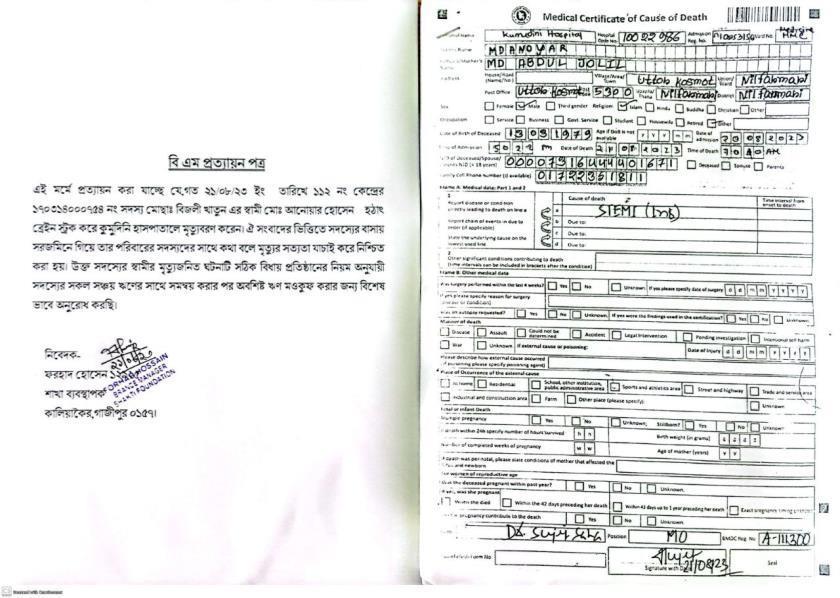 বি এম প্রত্যায়ন পত্র
এই মর্মে প্রত্যায়ন করা যাচ্ছে যে,গত ২১/০৮/২৩ ইং তারিখে ১১২ নং কেন্দ্রের
১৭০৩১৪০০০৭৫৪ নং সদস্য মোছাঃ বিজলী খাতুন এর স্বামী মোঃ আনোয়ার হোসেন হঠাৎ
ব্রেইন স্ট্রক করে কুমুদিনি হাসপাতালে মৃত্যুবরণ করেন। ঐ সংবাদের ভিত্তিতে সদস্যের বাসায়
সরজমিনে গিয়ে তার পরিবারের সদস্যদের সাথে কথা বলে মৃত্যুর সত্যতা যাচাই করে নিশ্চিত
করা হয়। উক্ত সদস্যের স্বামীর মৃত্যুজনিত ঘটনাটি সঠিক বিধায় প্রতিষ্ঠানের নিয়ম অনুযায়ী
সদস্যের সকল সঞ্চয় ঋণের সাথে সমন্বয় করার পর অবশিষ্ট ঋণ মওকুফ করার জন্য বিশেষ
ভাবে অনুরোধ করছি।
নিবেদক-
ফরহাদ হোসেন
শাখা ব্যবস্থাপক
কালিয়াকৈর,গাজীপুর ০১৫৭।
HOSSAIN
BRANCH MANAGER
FOUNDATION
Medical Certificate of Cause of Death
Name Kumudini Hospital Hospital Code No. 10022986 Admission Reg. No.
Name MD ANOYAR
Name MD ABDUL JOLIL
House/Road (Name/No) Village/Area/Town Uttob Kosmot Union/Ward Nilfamari
Post Office Uttob Kosmot 5300 Upazila/Thana Nilfamari District Nilfamari
Sex Female Male Third gender Religion Islam Hindu Buddha Christian Other
Occupation Service Business Govt. Service Student Housewife Retired Other
Date of Birth of Deceased 1979 Age if DoB is not available Date of admission 20 08 2023
Time of Admission Date of Death 21 08 2023 Time of Death AM
Deceased Spouse Parents
Family Cell Phone number (if available)
Frame A: Medical data: Part 1 and 2
1
Report disease or condition directly leading to death on line a
Report chain of events in due to order (if applicable)
State the underlying cause on the lowest used line
Cause of death
Time interval from onset to death
a STEMI
b Due to:
c Due to:
d Due to:
2
Other significant conditions contributing to death
(time intervals can be included in brackets after the condition)
Frame B: Other medical data
Was surgery performed within the last 4 weeks? Yes No Unknown If yes please specify date of surgery d d m m y y y y
If yes please specify reason for surgery (disease or condition)
Was an autopsy requested? Yes No Unknown If yes were the findings used in the certification? Yes No Unknown
Manner of death
Disease Assault Could not be determined Accident Legal intervention Pending investigation Intentional self harm
War Unknown If external cause or poisoning: Date of injury d d m m y y y y
Please describe how external cause occurred
(If poisoning please specify poisoning agent)
Place of Occurrence of the external cause
At home Residential School, other institution, public administrative area Sports and athletics area Street and highway Trade and service area
Industrial and construction area Farm Other place (please specify): Unknown
Fetal or infant Death
Multiple pregnancy Yes No Unknown Stillborn? Yes No Unknown
If death within 24h specify number of hours survived h h Birth weight (in grams) g g g g
Number of completed weeks of pregnancy w w Age of mother (years) y y
If death was perinatal, please state conditions of mother that affected the fetus and newborn
For women of reproductive age
Was the deceased pregnant within past year? Yes No Unknown
If yes, was she pregnant
When she died Within the 42 days preceding her death Within 43 days up to 1 year preceding her death Exact pregnancy timing unknown
Did the pregnancy contribute to the death Yes No Unknown
Position MO BMDC Reg. No A-111300
Signature with Date 21/08/23 Seal
Scanned with CamScanner